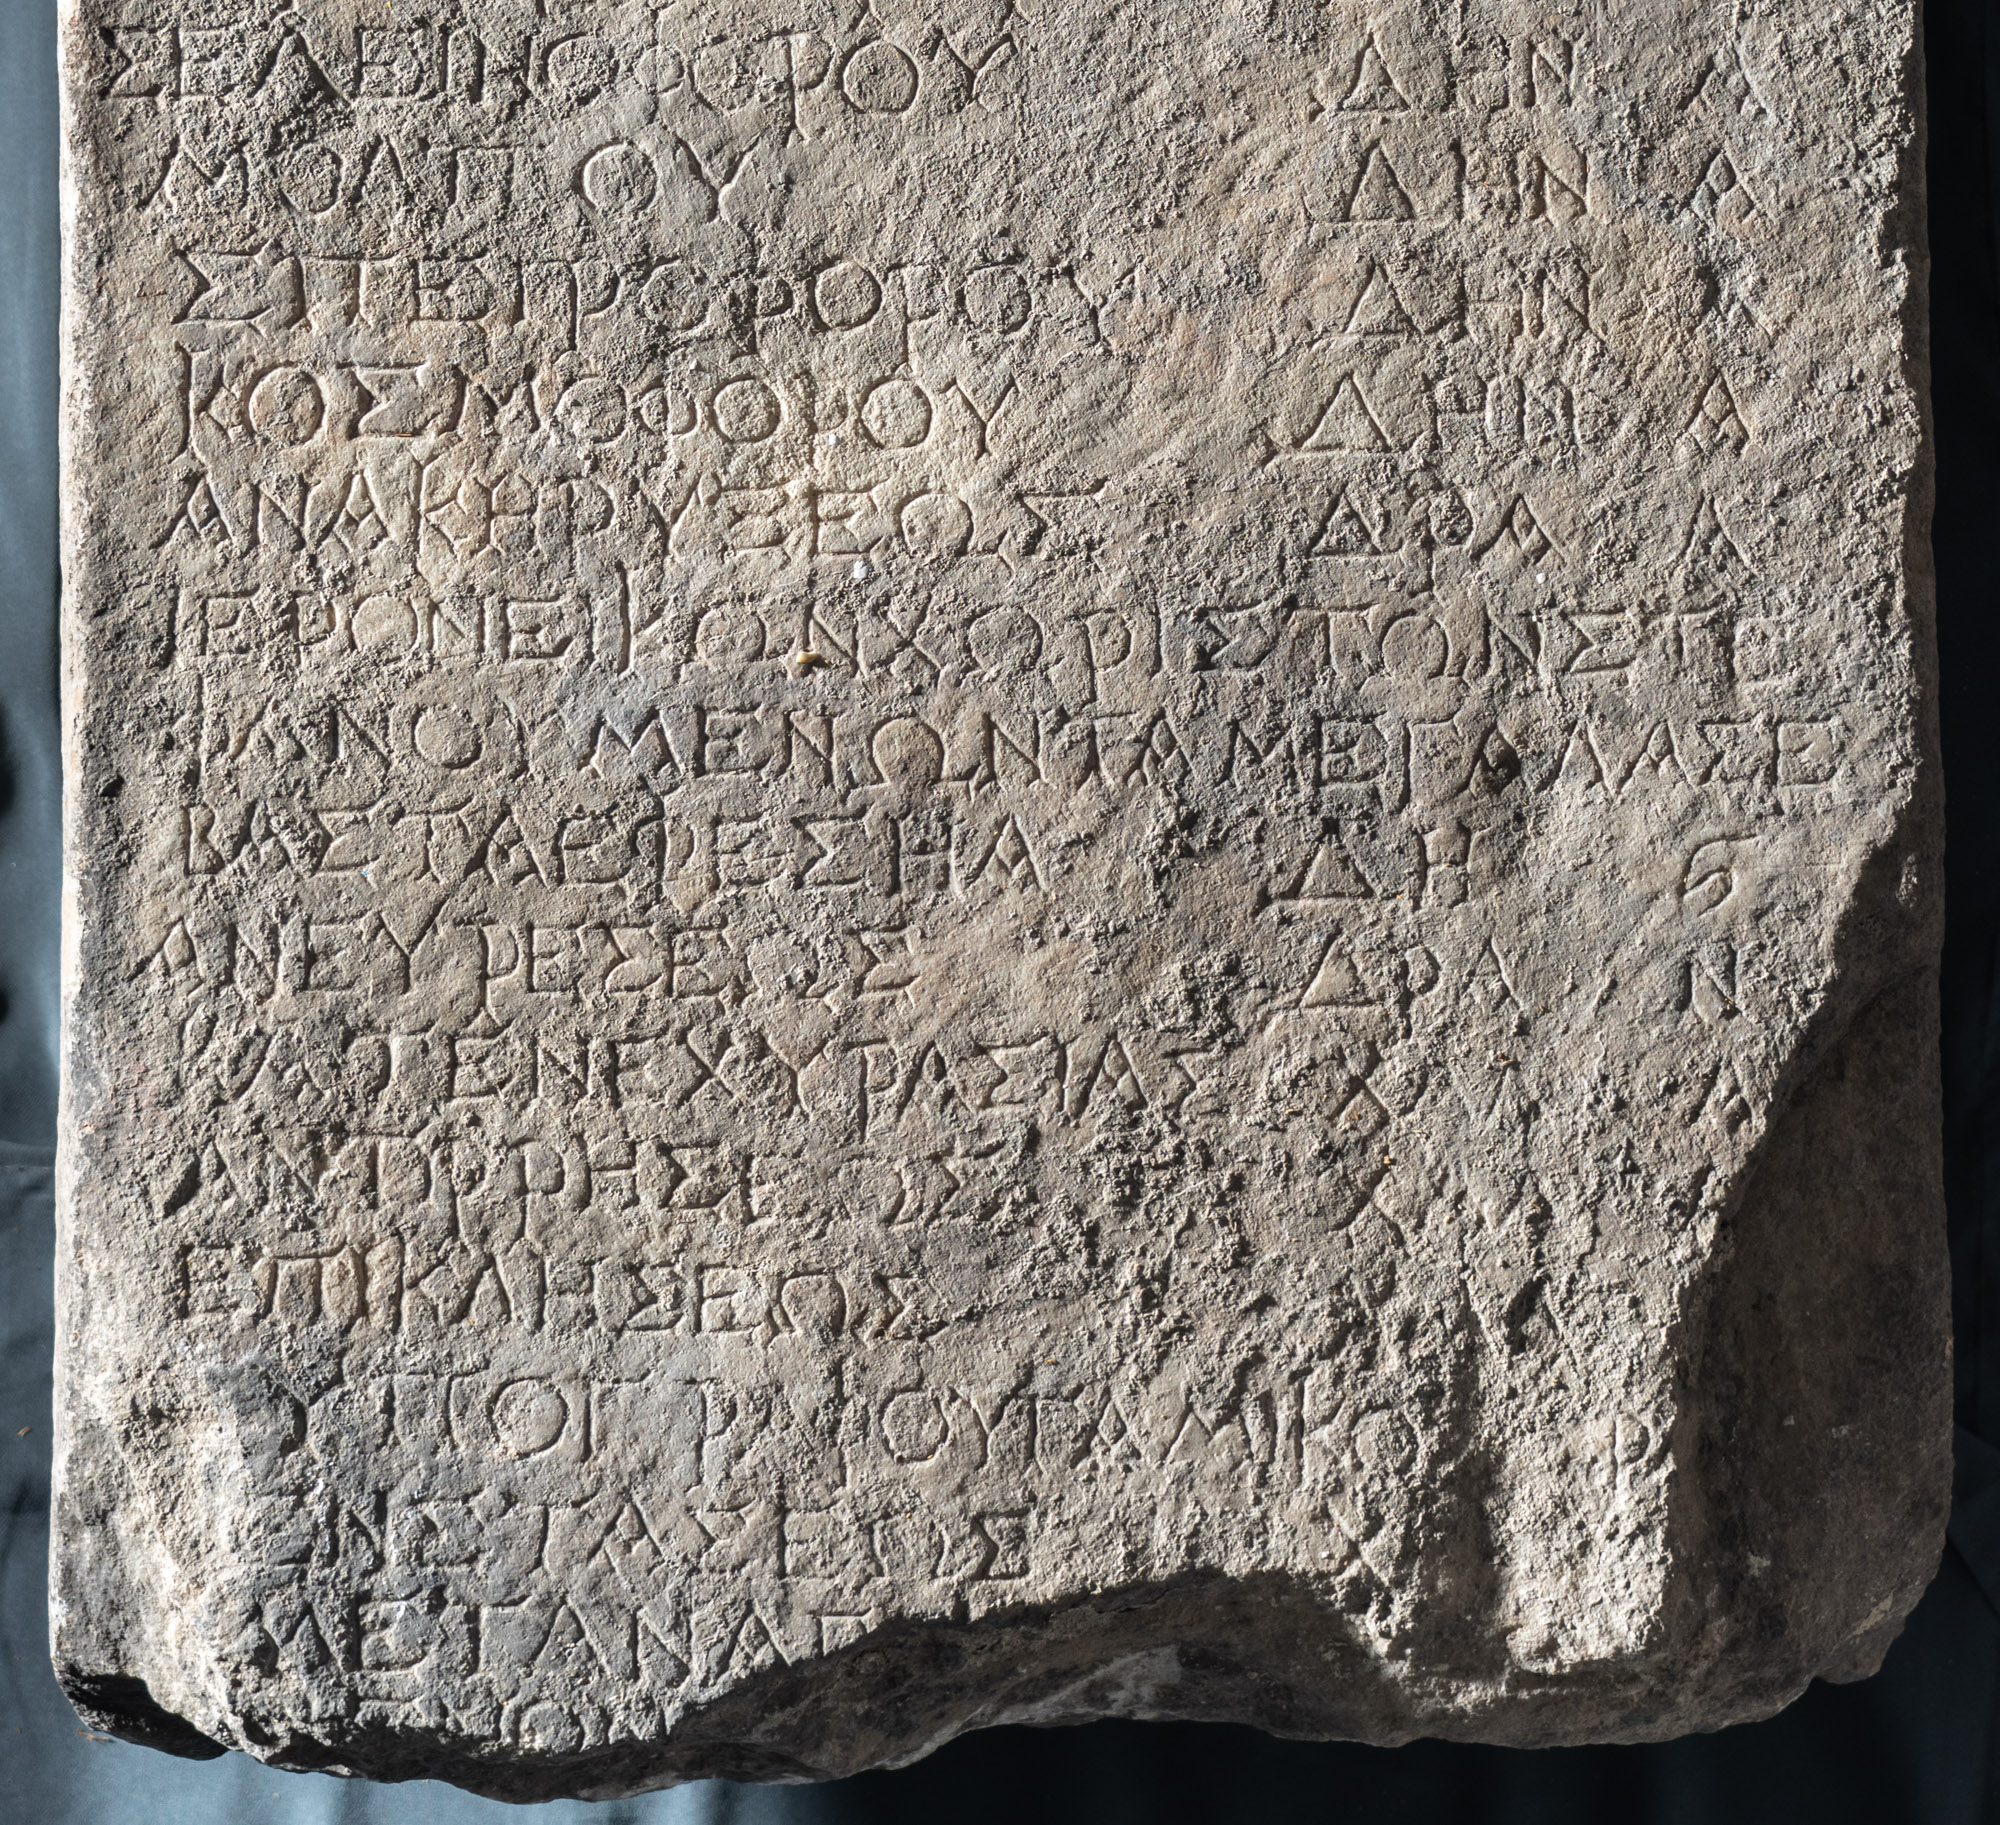 ΣΕΛΕΙΝΟΦΟΡΟΥ ΔΗΝ Α
ΜΟΛΠΟΥ ΔΗΝ Α
ΣΠΕΙΡΟΦΟΡΟΥ ΔΗΝ Α
ΚΟΣΜΟΦΟΡΟΥ ΔΗΝ Α
ΑΝΑΚΗΡΥΞΕΩΣ ΔΡΑ Α
ΙΕΡΟΝΕΙΚΩΝ ΧΩΡΙΣ ΤΩΝ ΣΤΕ
ΦΑΝΟΥΜΕΝΩΝ ΤΑ ΜΕΓΑΛΑ ΣΕ
ΒΑΣΤΑ ΕΦΕΣΗΑ ΔΗ Ϛ
ΑΝΕΥΡΕΣΕΩΣ ΔΡΑ Ν
ΚΑΤΕΝΕΧΥΡΑΣΙΑΣ Α
ΑΝΤΙΡΡΗΣΕΩΣ
ΕΠΙΚΛΗΣΕΩΣ
ΥΠΟΓΡΑΦΟΥ ΓΑΜΙΚΟΥ
ΕΝΣΤΑΣΕΩΣ
ΜΕΤΑΝΑΓ